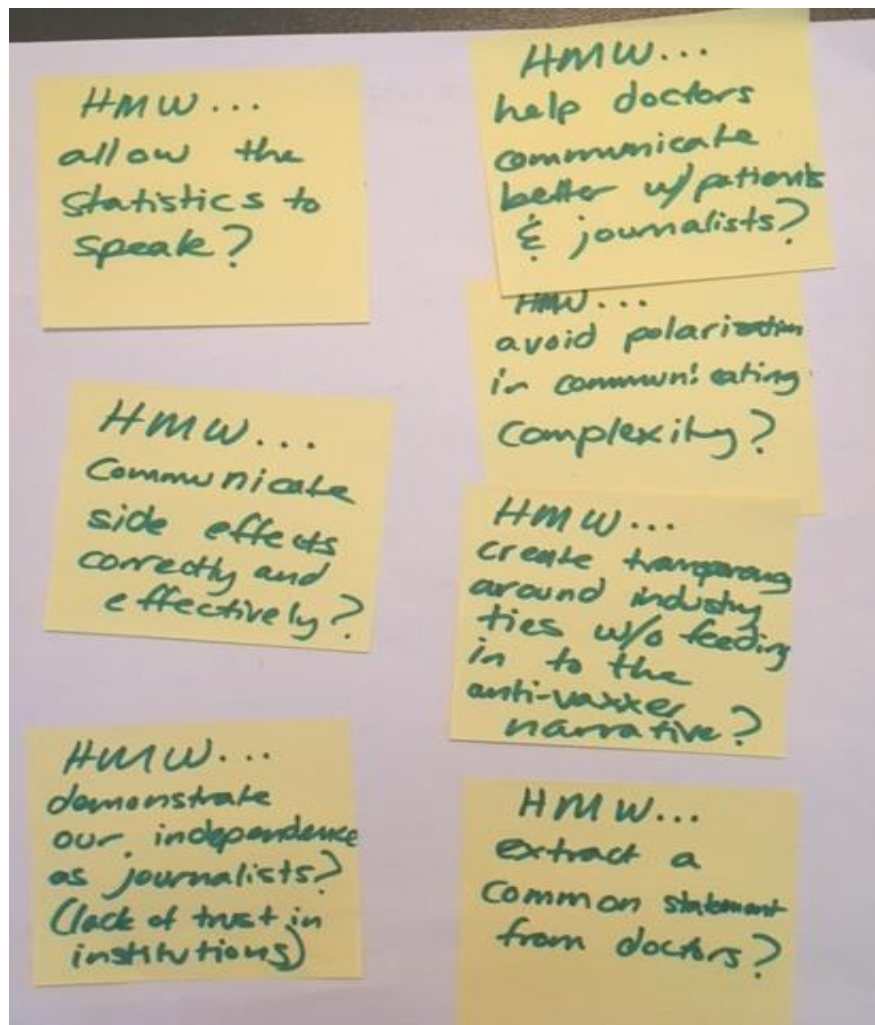 HMW...
allow the
statistics to
speak?
HMW...
communicate
side effects
correctly and
effectively?
HMW...
demonstrate
our independence
as journalists?
(lack of trust in
institutions)
HMW...
help doctors
communicate
better w/ patients
& journalists?
HMW...
avoid polarization
in communicating
complexity?
HMW...
create transparency
around industry
ties w/o feeding
in to the
anti-vaxxer
narrative?
HMW...
extract a
common statement
from doctors?